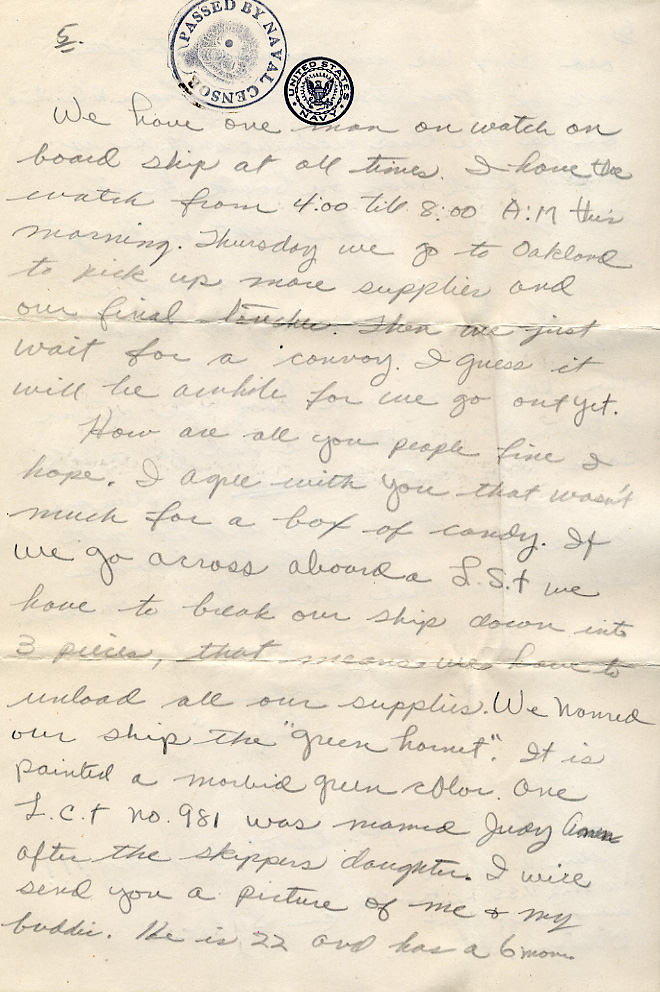 5.
PASSED BY NAVAL CENSOR
UNITED STATES NAVY
We have one man on watch on
board ship at all times. I have the
watch from 4:00 till 8:00 A:M this
morning. Thursday we go to Oakland
to pick up more supplies and
our final Then we just
wait for a convoy. I guess it
will be awhile for we go out yet.
How are all you people fine I
hope. I agree with you that wasn't
much for a box of candy. If
we go across aboard a L.S.t we
have to break our ship down into
3 pieces, that means we have to
unload all our supplies. We nomed
our ship the "green hornet". It is
painted a morbid green color. One
L.C.t no. 981 was named Judy
after the skippers daughter. I will
send you a picture of me & my
buddie. He is 22 and has a 6 mon.